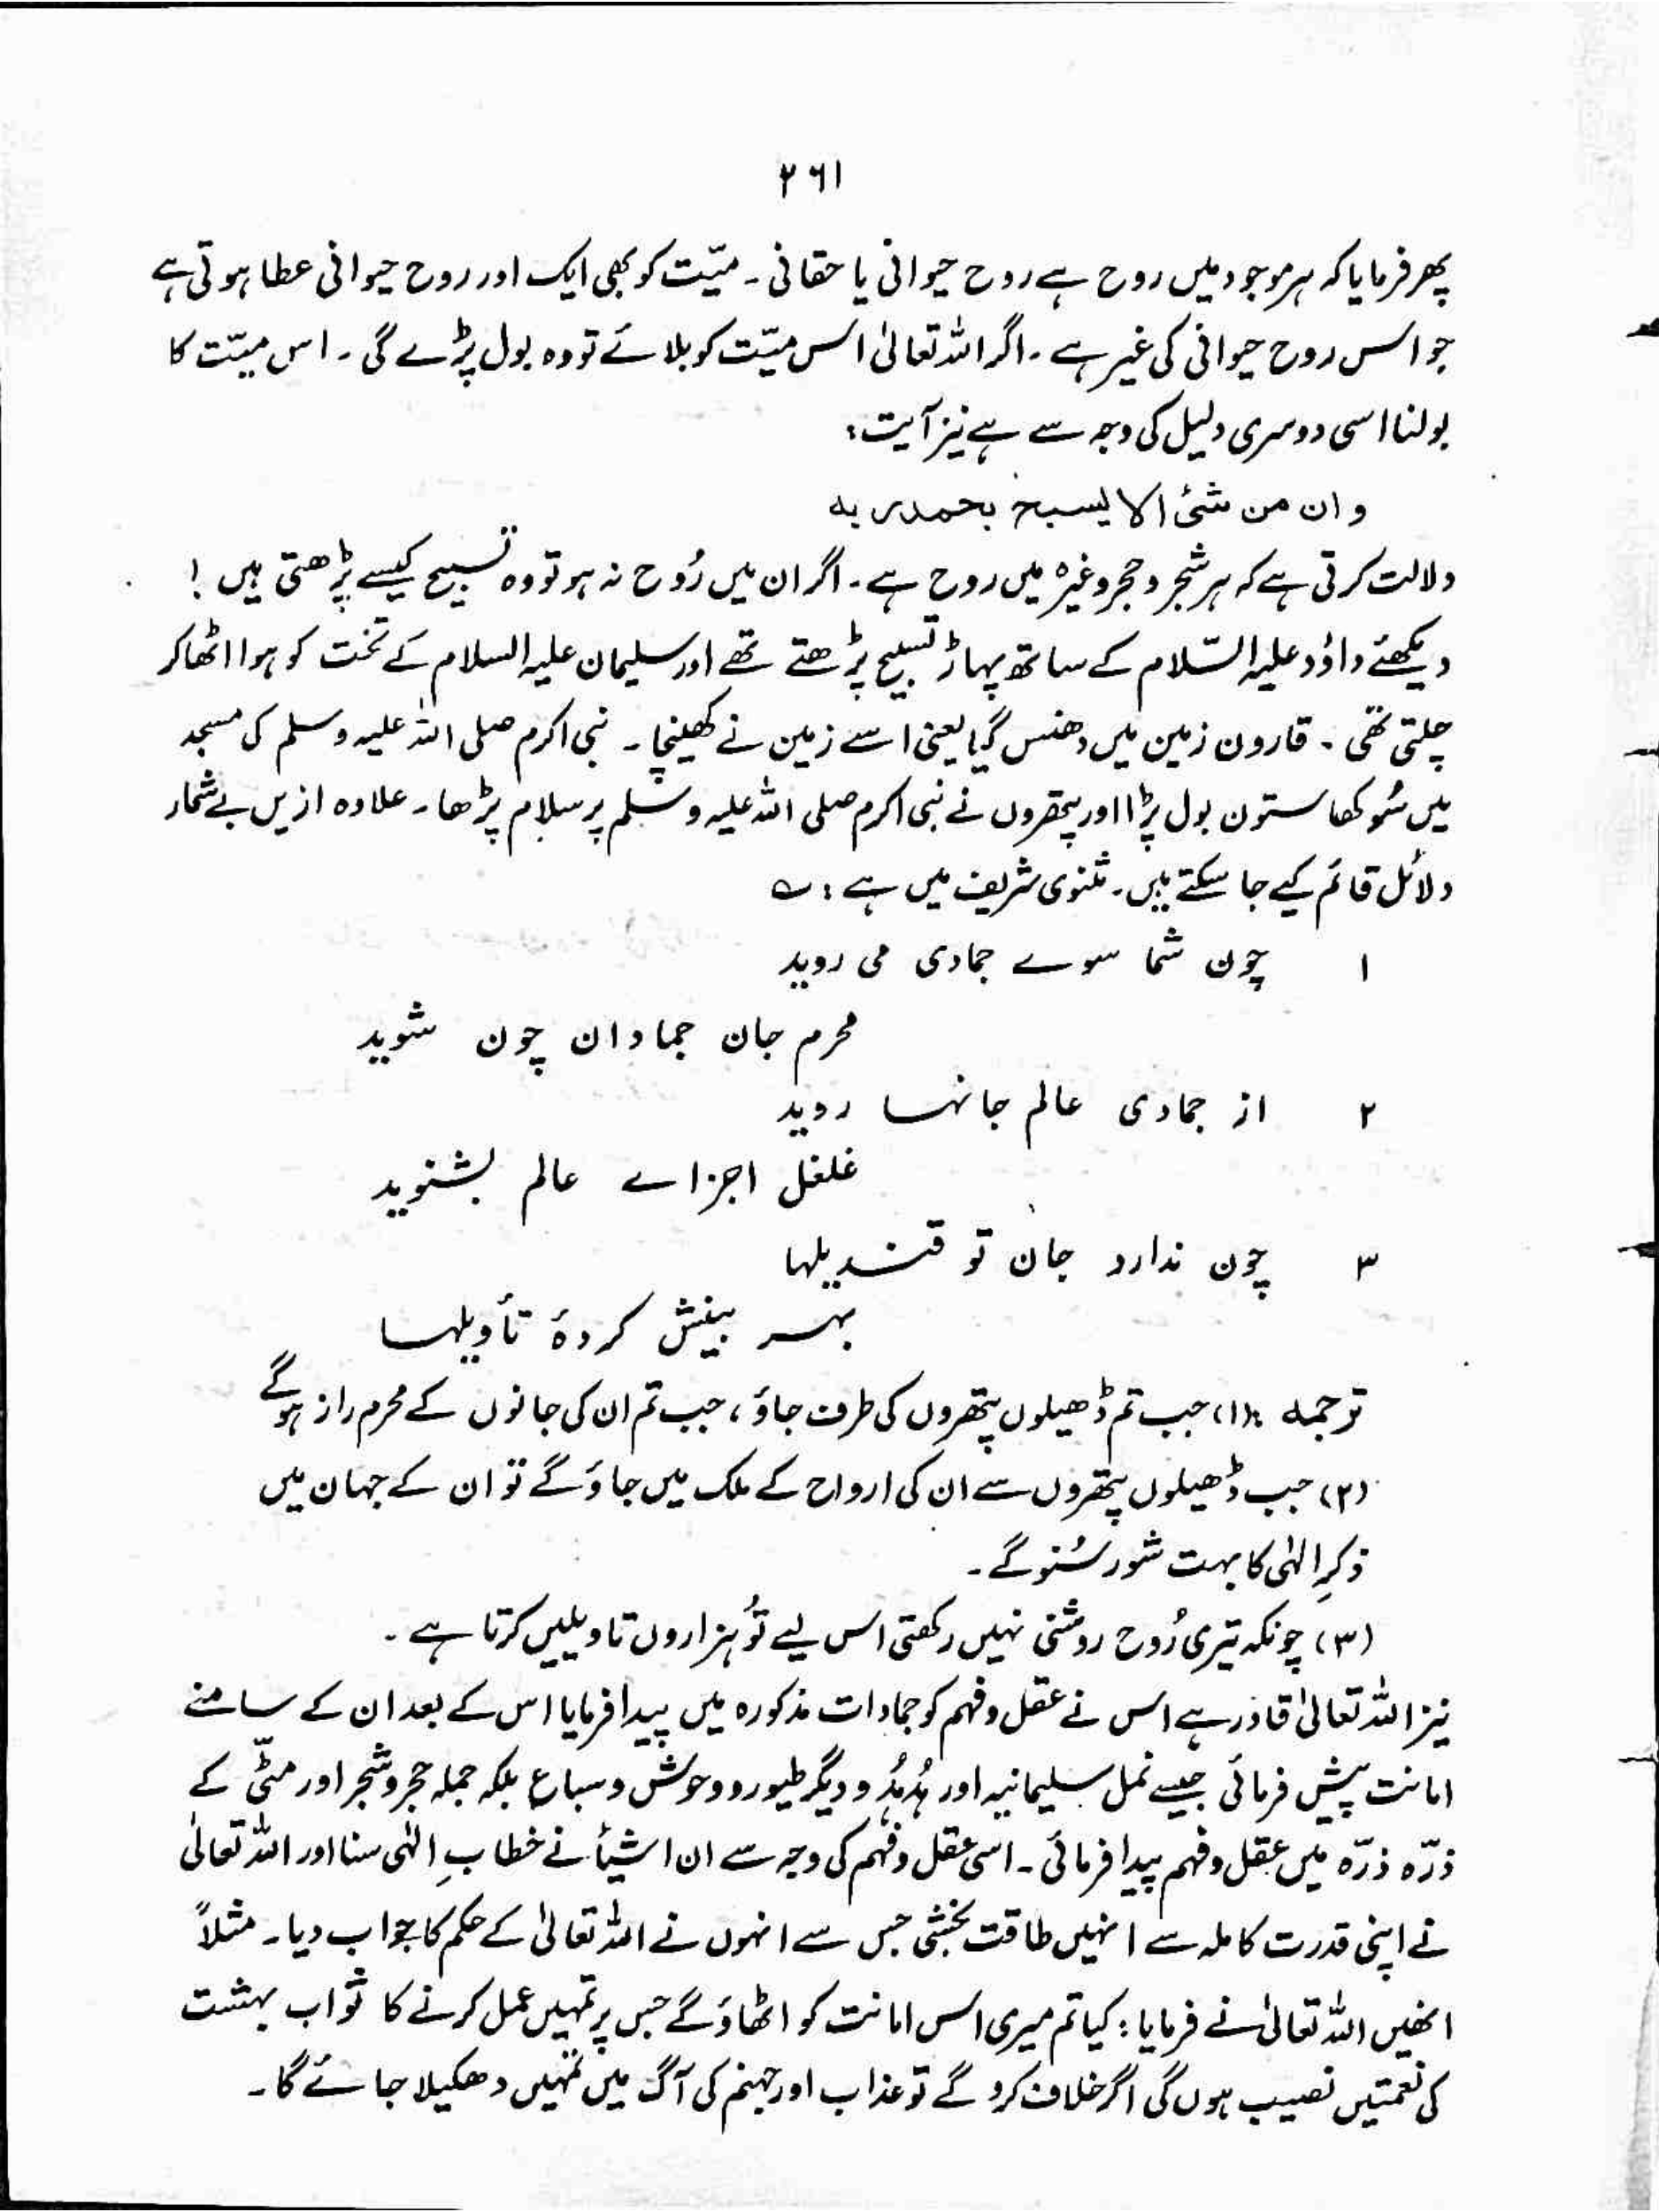 ۲۶۱
پھر فرمایا کہ ہر موجود میں روح ہے روح حیوانی یا حقانی ۔ میّت کو بھی ایک اور روح حیوانی عطا ہوتی ہے
جو اس روح حیوانی کی غیر ہے ۔ اگر اللہ تعالیٰ اس میّت کو بلائے تو وہ بول پڑے گی ۔ اس میّت کا
بولنا اسی دوسری دلیل کی وجہ سے ہے نیز آیت :
و ان من شئ الا یسبح بحمد ربہ
دلالت کرتی ہے کہ ہر شجر و حجر وغیرہ میں روح ہے ۔ اگر ان میں رُوح نہ ہو تو وہ تسبیح کیسے پڑھتی ہیں !
دیکھئے داؤد علیہ السّلام کے ساتھ پہاڑ تسبیح پڑھتے تھے اور سلیمان علیہ السلام کے تخت کو ہوا اٹھا کر
چلتی تھی ۔ قارون زمین میں دھنس گیا یعنی اسے زمین نے کھینچا ۔ نبی اکرم صلی اللہ علیہ وسلم کی مسجد
میں سُوکھا ستون بول پڑا اور پتھروں نے نبی اکرم صلی اللہ علیہ وسلم پر سلام پڑھا ۔ علاوہ ازیں بے شمار
دلائل قائم کیے جا سکتے ہیں ۔ مثنوی شریف میں ہے : ؎
۱ چون شما سوے جمادی می روید
محرم جان جمادان چون شوید
۲ از جمادی عالم جانہا روید
غلغل اجزاے عالم بشنوید
۳ چون ندارد جان تو قندیلہا
بہر بینش کردۂ تأویلہا
ترجمہ : (۱) جب تم ڈھیلوں پتھروں کی طرف جاؤ ، جب تم ان کی جانوں کے محرم راز ہو گے
(۲) جب ڈھیلوں پتھروں سے ان کی ارواح کے ملک میں جاؤ گے تو ان کے جہان میں
ذکرِ الٰہی کا بہت شور سُنو گے ۔
(۳) چونکہ تیری رُوح روشنی نہیں رکھتی اس لیے تُو ہزاروں تاویلیں کرتا ہے ۔
نیز اللہ تعالیٰ قادر ہے اس نے عقل و فہم کو جمادات مذکورہ میں پیدا فرمایا اس کے بعد ان کے سامنے
امانت پیش فرمائی جیسے نمل سلیمانیہ اور ہُدہُد و دیگر طیور و وحوش و سباع بلکہ جملہ حجر و شجر اور مٹّی کے
ذرّہ ذرّہ میں عقل و فہم پیدا فرمائی ۔ اسی عقل و فہم کی وجہ سے ان اشیأ نے خطابِ الٰہی سنا اور اللہ تعالیٰ
نے اپنی قدرت کاملہ سے انہیں طاقت بخشی جس سے انہوں نے اللہ تعالیٰ کے حکم کا جواب دیا ۔ مثلاً
انھیں اللہ تعالیٰ نے فرمایا : کیا تم میری اس امانت کو اٹھاؤ گے جس پر تمہیں عمل کرنے کا ثواب بہشت
کی نعمتیں نصیب ہوں گی اگر خلاف کرو گے تو عذاب اور جہنم کی آگ میں تمہیں دھکیلا جائے گا ۔